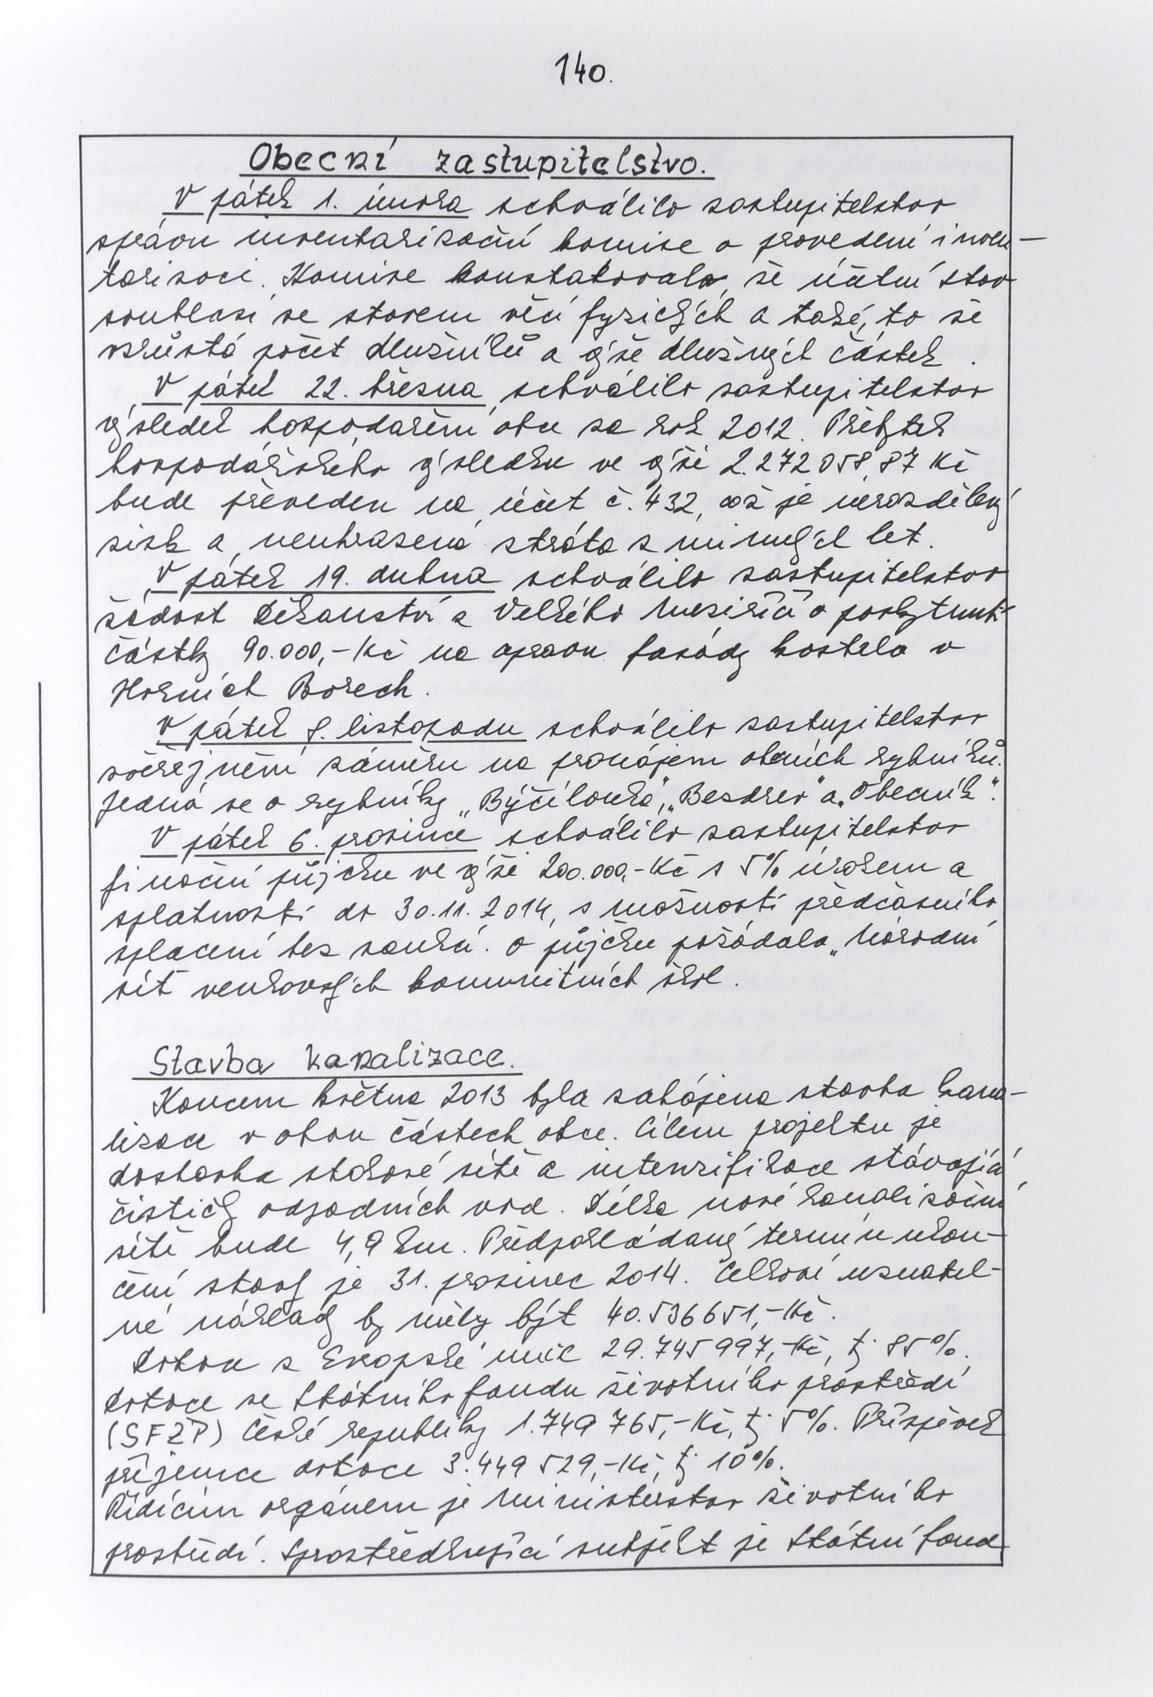 140.
Obecní zastupitelstvo.
V pátek 1. února schválilo zastupitelstvo
zprávu inventarizační komise o provedení inven-
tarizaci. Komise konstatovala, že účetní stav
souhlasí se stavem věcí fyzických a také, to že
vzrůstá počet dlužníků a výše dlužných částek.
V pátek 22. března schválilo zastupitelstvo
výsledek hospodaření obce za rok 2012. Přebytek
hospodářského výsledku ve výši 2.272 058 87 Kč
bude převeden na účet č. 432, což je nerozdělený
zisk a neuhrazená ztráta z minulých let.
V pátek 19. dubna schválilo zastupitelstvo
žádost Děkanství z Velkého Meziříčí o poskytnutí
částky 90.000,-Kč na opravu fasády kostela v
Horních Borech.
V pátek 8. listopadu schválilo zastupitelstvo
zveřejnění záměru na pronájem obecních rybníků.
Jedná se o rybníky „Býčílouka", „Bezdrev" a „Obecník".
V pátek 6. prosince schválilo zastupitelstvo
finační půjčku ve výši 200.000,-Kč s 5% úrokem a
splatností do 30.11.2014, s možností předčasného
splacení bez sankcí. O půjčku požádala „Národní
síť venkovských komunitních škol.
Stavba kanalizace.
Koncem května 2013 byla zahájena stavba kana-
lizace v obou částech obce. Cílem projektu je
dostavba stokové sítě a intenzifikace stávající
čističky odpadních vod. Délka nové kanalizační
sítě bude 4,9 km. Předpokládaný termín ukon-
čení stavby je 31. prosinec 2014. Celkové uznatel-
né náklady by měly být 40.536651,-Kč.
Dotace z Evropské unie 29.745 997,-Kč, tj 85%.
Dotace ze Státního fondu životního prostředí
(SFŽP) České republiky 1.749 765,-Kč, tj 5%. Příspěvek
příjemce dotace 3.449 529,-Kč, tj 10%.
Řídícím orgánem je Ministerstvo životního
prostředí. Zprostředkující subjekt je Státní fond